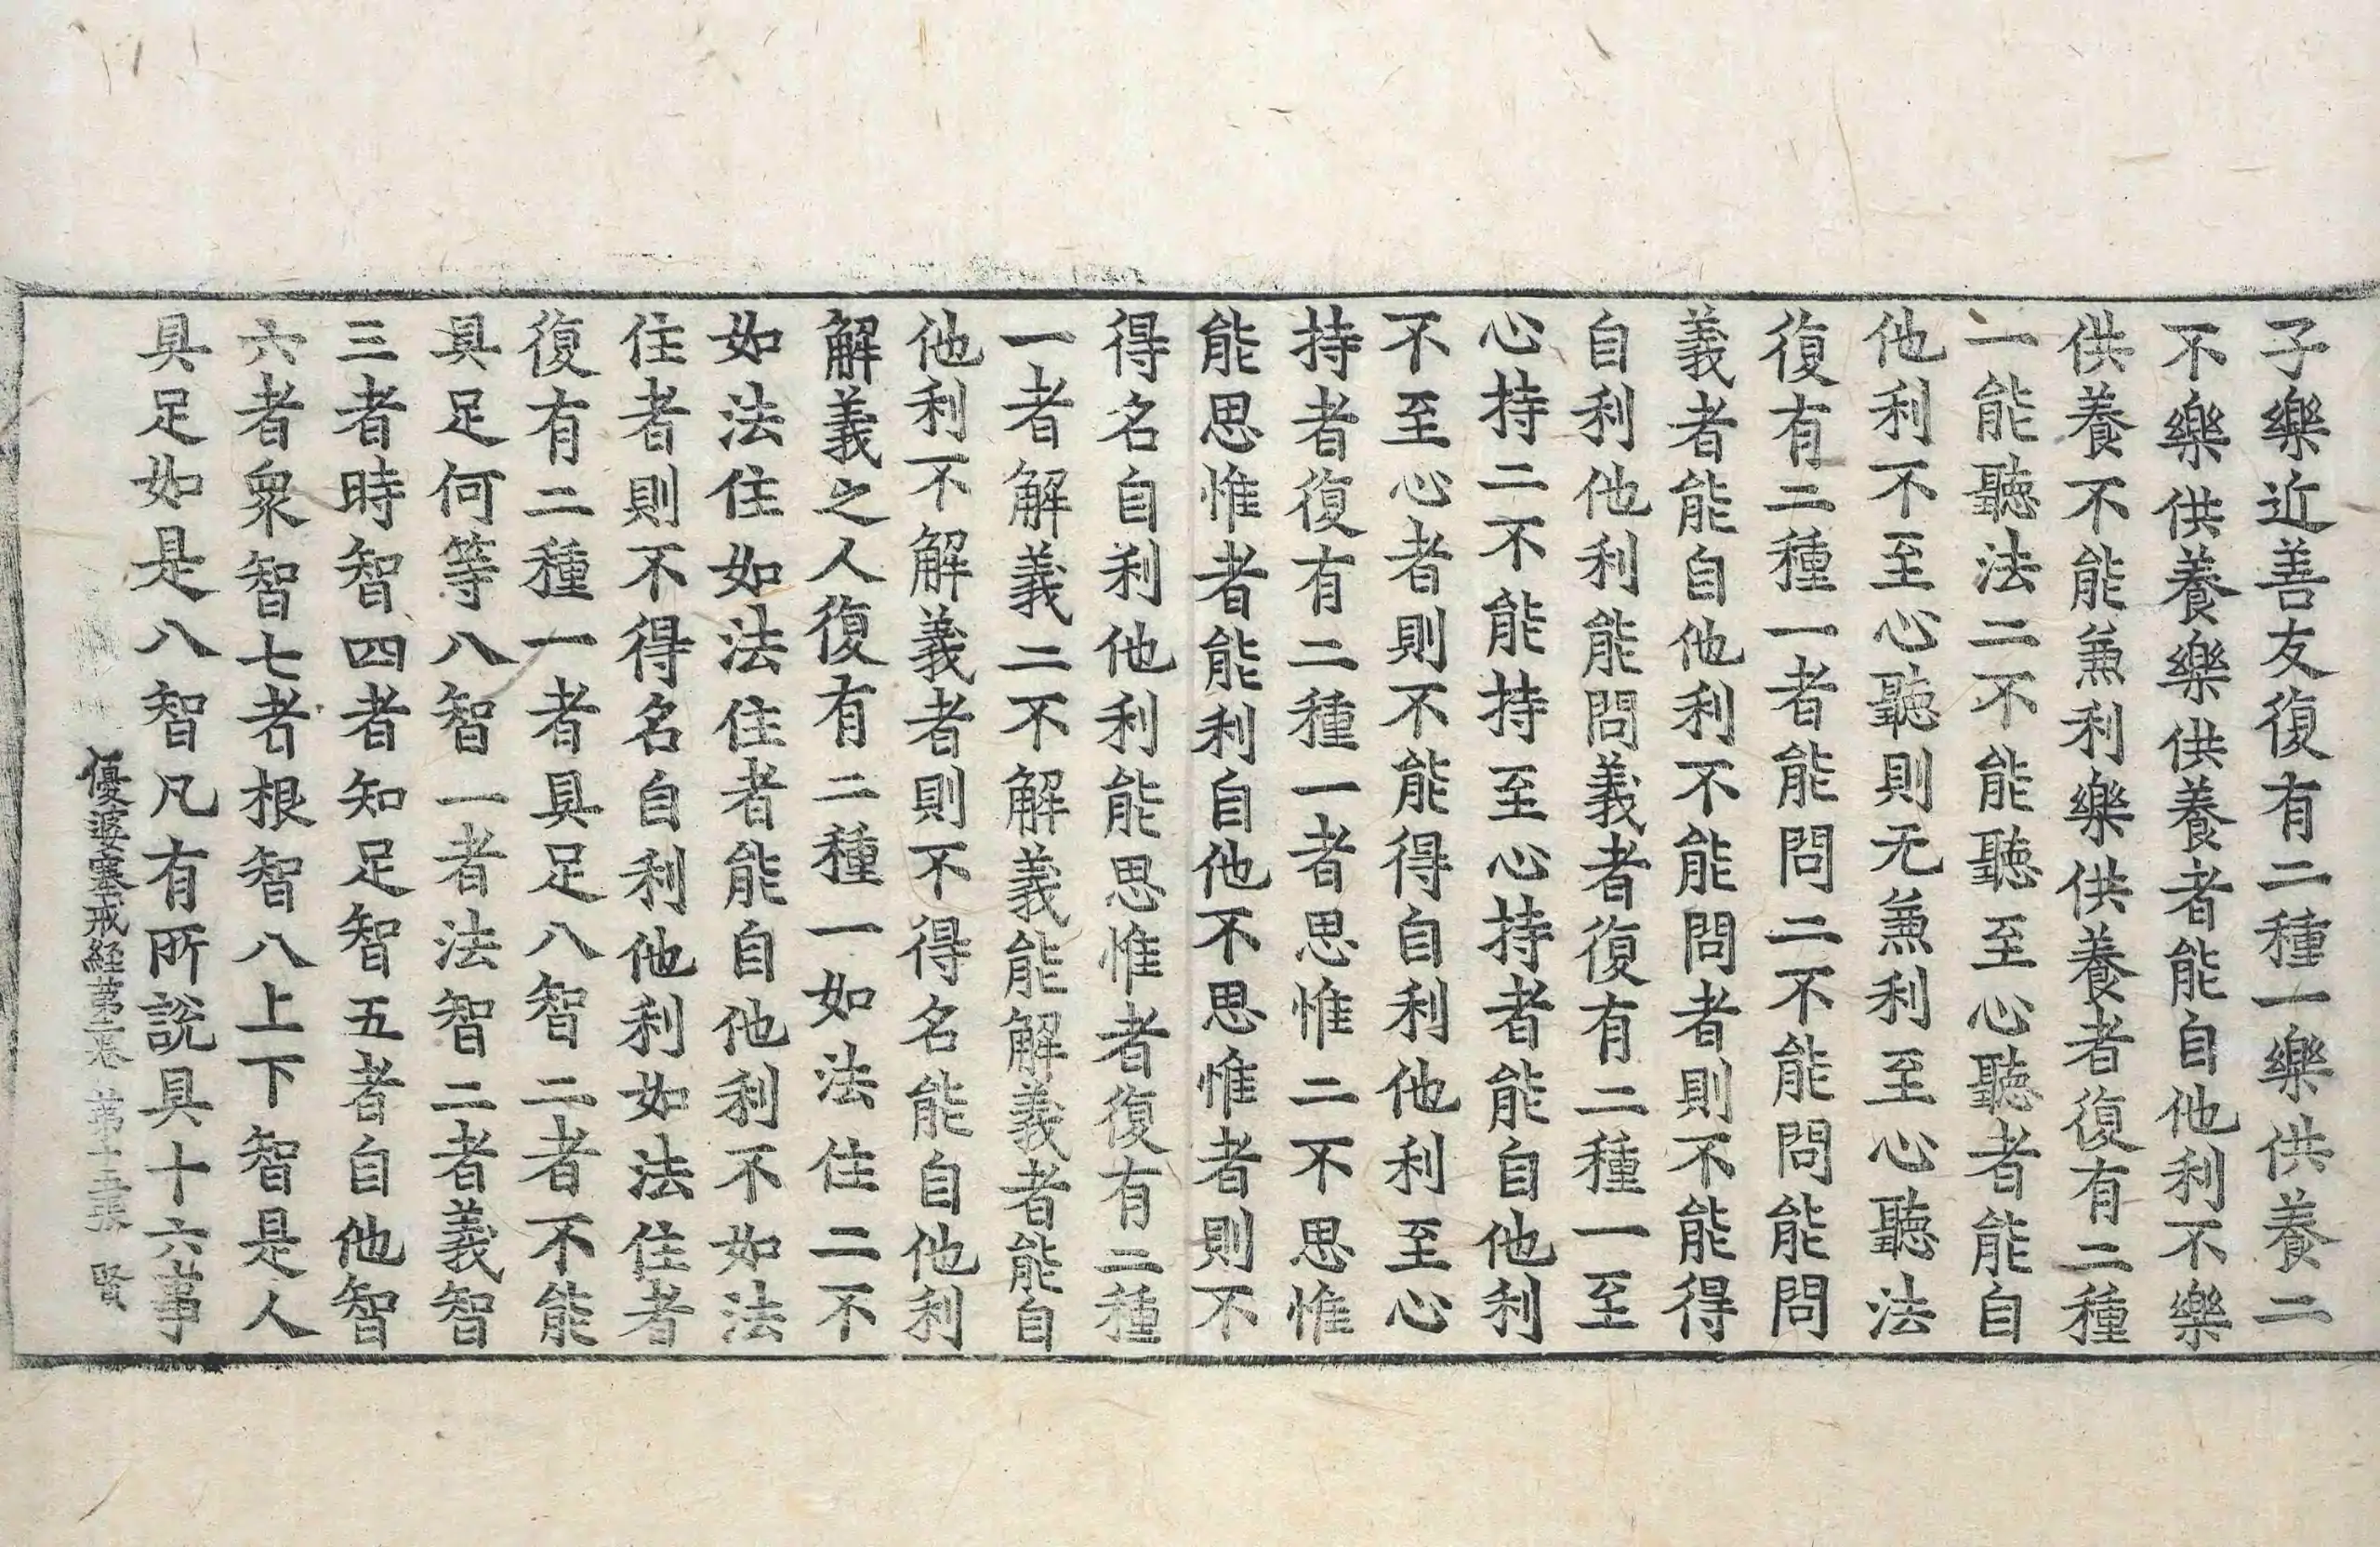 子樂近善友復有二種一樂供養二
不樂供養樂供養者能自他利不樂
供養不能兼利樂供養者復有二種
一能聽法二不能聽至心聽者能自
他利不至心聽則无兼利至心聽法
復有二種一者能問二不能問能問
義者能自他利不能問者則不能得
自利他利能問義者復有二種一至
心持二不能持至心持者能自他利
不至心者則不能得自利他利至心
持者復有二種一者思惟二不思惟
能思惟者能利自他不思惟者則不
得名自利他利能思惟者復有二種
一者解義二不解義能解義者能自
他利不解義者則不得名能自他利
解義之人復有二種一如法住二不
如法住如法住者能自他利不如法
住者則不得名自利他利如法住者
復有二種一者具足八智二者不能
具足何等八智一者法智二者義智
三者時智四者知足智五者自他智
六者衆智七者根智八上下智是人
具足如是八智凡有所說具十六事
優婆塞戒経第二卷 第十五張 賢